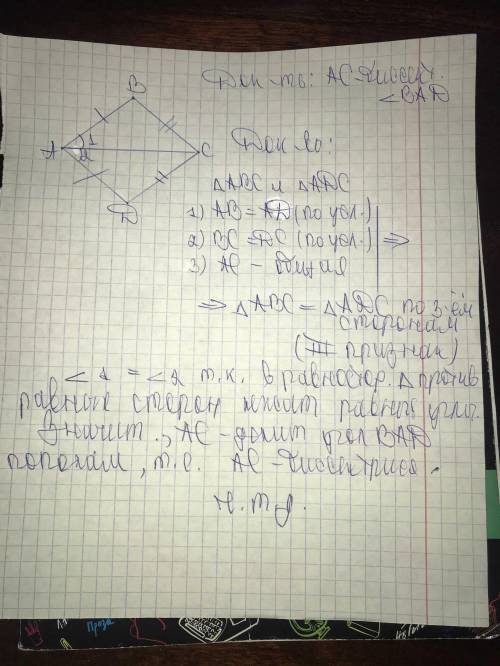 Док-ть: АС-биссект.
∠BAD
B
A
1
2
C
D
Док-во:
△ABC и △ADC
1) AB = AD (по усл.)
2) BC = DC (по усл.) ⇒
3) AC - общая
⇒ △ABC = △ADC по 3-ём
сторонам
(III признак)
∠1 = ∠2 т.к. в равностор. △ против
равных сторон лежат равные углы.
Значит, AC - делит угол BAD
пополам, т.е. AC - биссектриса.
ч.т.д.
Проза